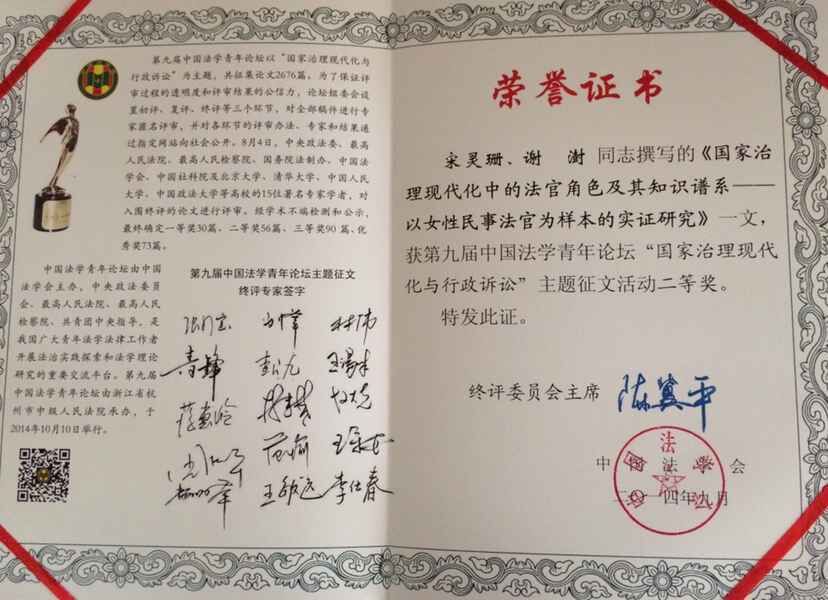 第九届中国法学青年论坛以“国家治理现代化与
行政诉讼”为主题，共征集论文2676篇。为了保证评
审过程的透明度和评审结果的公信力，论坛组委会设
置初评、复评、终评等三个环节，对全部稿件进行专
家匿名评审，并对各环节的评审办法、专家和结果通
过指定网站向社会公开。8月4日，中央政法委、最高
人民法院、最高人民检察院、国务院法制办、中国法
学会、中国社科院及北京大学、清华大学、中国人民
大学、中国政法大学等高校的15位著名专家学者，对
入围终评的论文进行评审。经学术不端检测和公示，
最终确定一等奖30篇、二等奖56篇、三等奖90篇、优
秀奖73篇。
中国法学青年论坛由中国
法学会主办，中央政法委员
会、最高人民法院、最高人民
检察院、共青团中央指导，是
我国广大青年法学法律工作者
开展法治实践探索和法学理论
研究的重要交流平台。第九届
中国法学青年论坛由浙江省杭
州市中级人民法院承办，于
2014年10月10日举行。
第九届中国法学青年论坛主题征文
终评专家签字
李仕春
荣誉证书
宋灵珊、谢 澍 同志撰写的《国家治
理现代化中的法官角色及其知识谱系——
以女性民事法官为样本的实证研究》一文，
获第九届中国法学青年论坛“国家治理现代
化与行政诉讼”主题征文活动二等奖。
特发此证。
终评委员会主席 陈冀平
中国法学会
二〇一四年九月